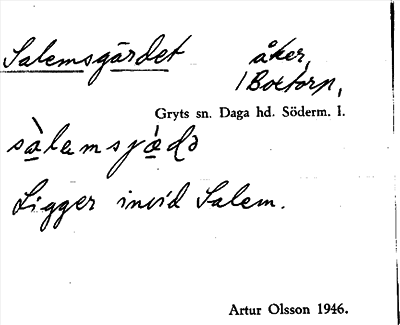 Salemsgärdet åker,
/ Boctorp,
Gryts sn. Daga hd. Söderm. l.
Ligger invid Salem.
Artur Olsson 1946.